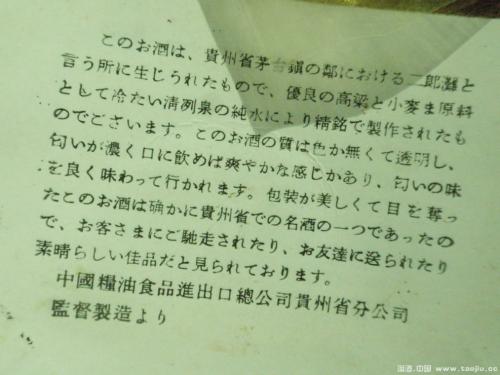 このお酒は、貴州省茅台鎮の鄰における二郎灘と
言う所に生じうれたもので、優良の高梁と小麥ま原料
として冷たい清冽泉の純水により精銘で製作されたも
のでございます。このお酒の質は色か無くて透明し、
匂いが濃く口に飲めば爽やかな感じかあり、匂いの味
を良く味わって行かれます。包装が美しくて目を奪っ
たこのお酒は确かに貴州省での名酒の一つであったの
で、お客さまにご馳走されたり、お友達に送られたり
素晴らしい佳品だと見られております。
中國糧油食品進出口總公司貴州省分公司
監督製造より
淘酒.中国 www.taojiu.cc